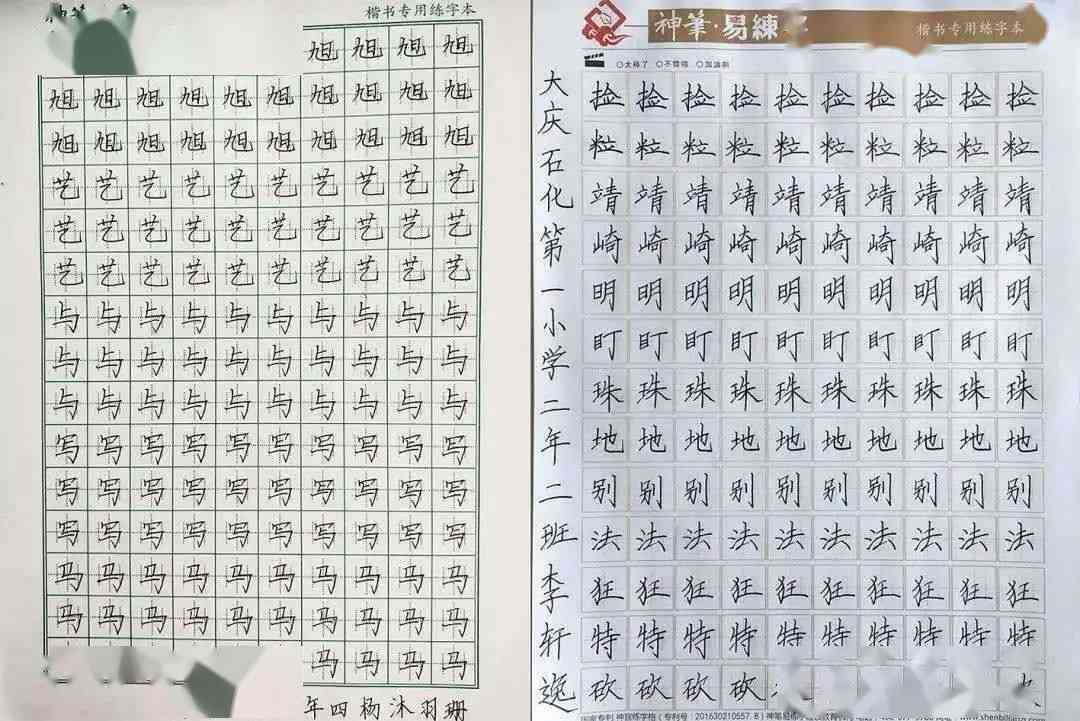 楷书专用练字本
旭旭旭旭
旭旭旭旭旭旭旭旭旭旭
旭旭旭旭旭旭旭旭旭旭
艺艺艺艺艺艺艺艺艺艺
艺艺艺艺艺艺艺艺艺艺
艺艺艺艺艺艺艺艺艺艺
与与与与与与与与与与
与与与与与与与与与与
与与与与与与与与与与
写写写写写写写写写写
写写写写写写写写写写
写写写写写写写写写写
马马马马马马马马马马
马马马马马马马马马马
马马马马
年四杨沐羽珊
神筆·易練
楷书专用练字本
○太棒了 ○不错哦 ○加油啊
大庆石化第一小学二年二班李轩逸
捡捡捡捡捡捡捡捡捡捡
粒粒粒粒粒粒粒粒粒粒
靖靖靖靖靖靖靖靖靖靖
崎崎崎崎崎崎崎崎崎崎
明明明明明明明明明明
盯盯盯盯盯盯盯盯盯盯
珠珠珠珠珠珠珠珠珠珠
地地地地地地地地地地
别别别别别别别别别别
法法法法法法法法法法
狂狂狂狂狂狂狂狂狂狂
特特特特特特特特特特
砍砍砍砍
(专利号:201630210557.8)